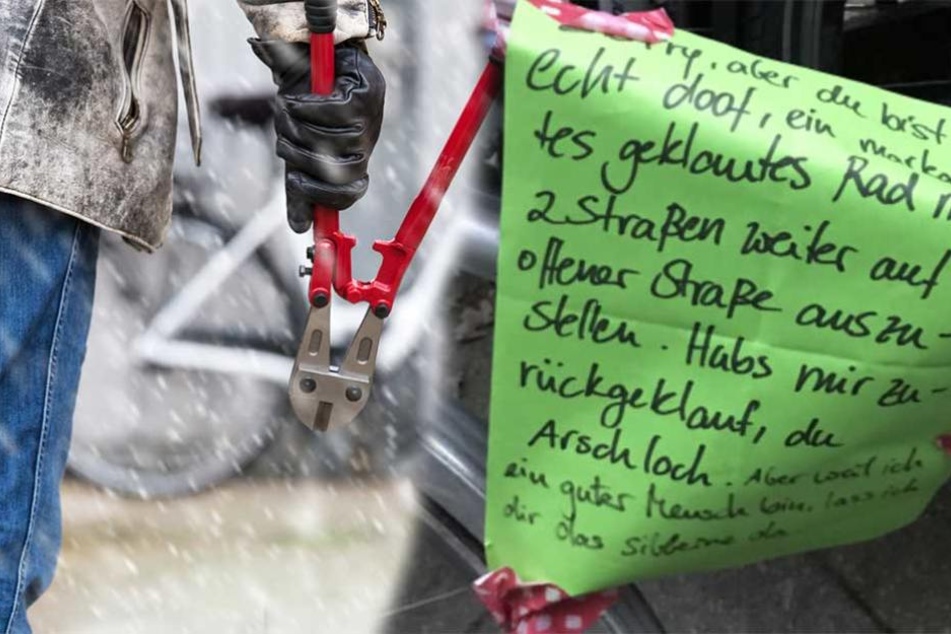 rry, aber du bist
echt doof, ein marka
tes geklautes Rad n
2 Straßen weiter auf
offener Straße auszu-
stellen. Habs mir zu-
rückgeklauf, du
Arschloch. Aber weil ich
ein guter Mensch bin, lass ich
dir das silberne da